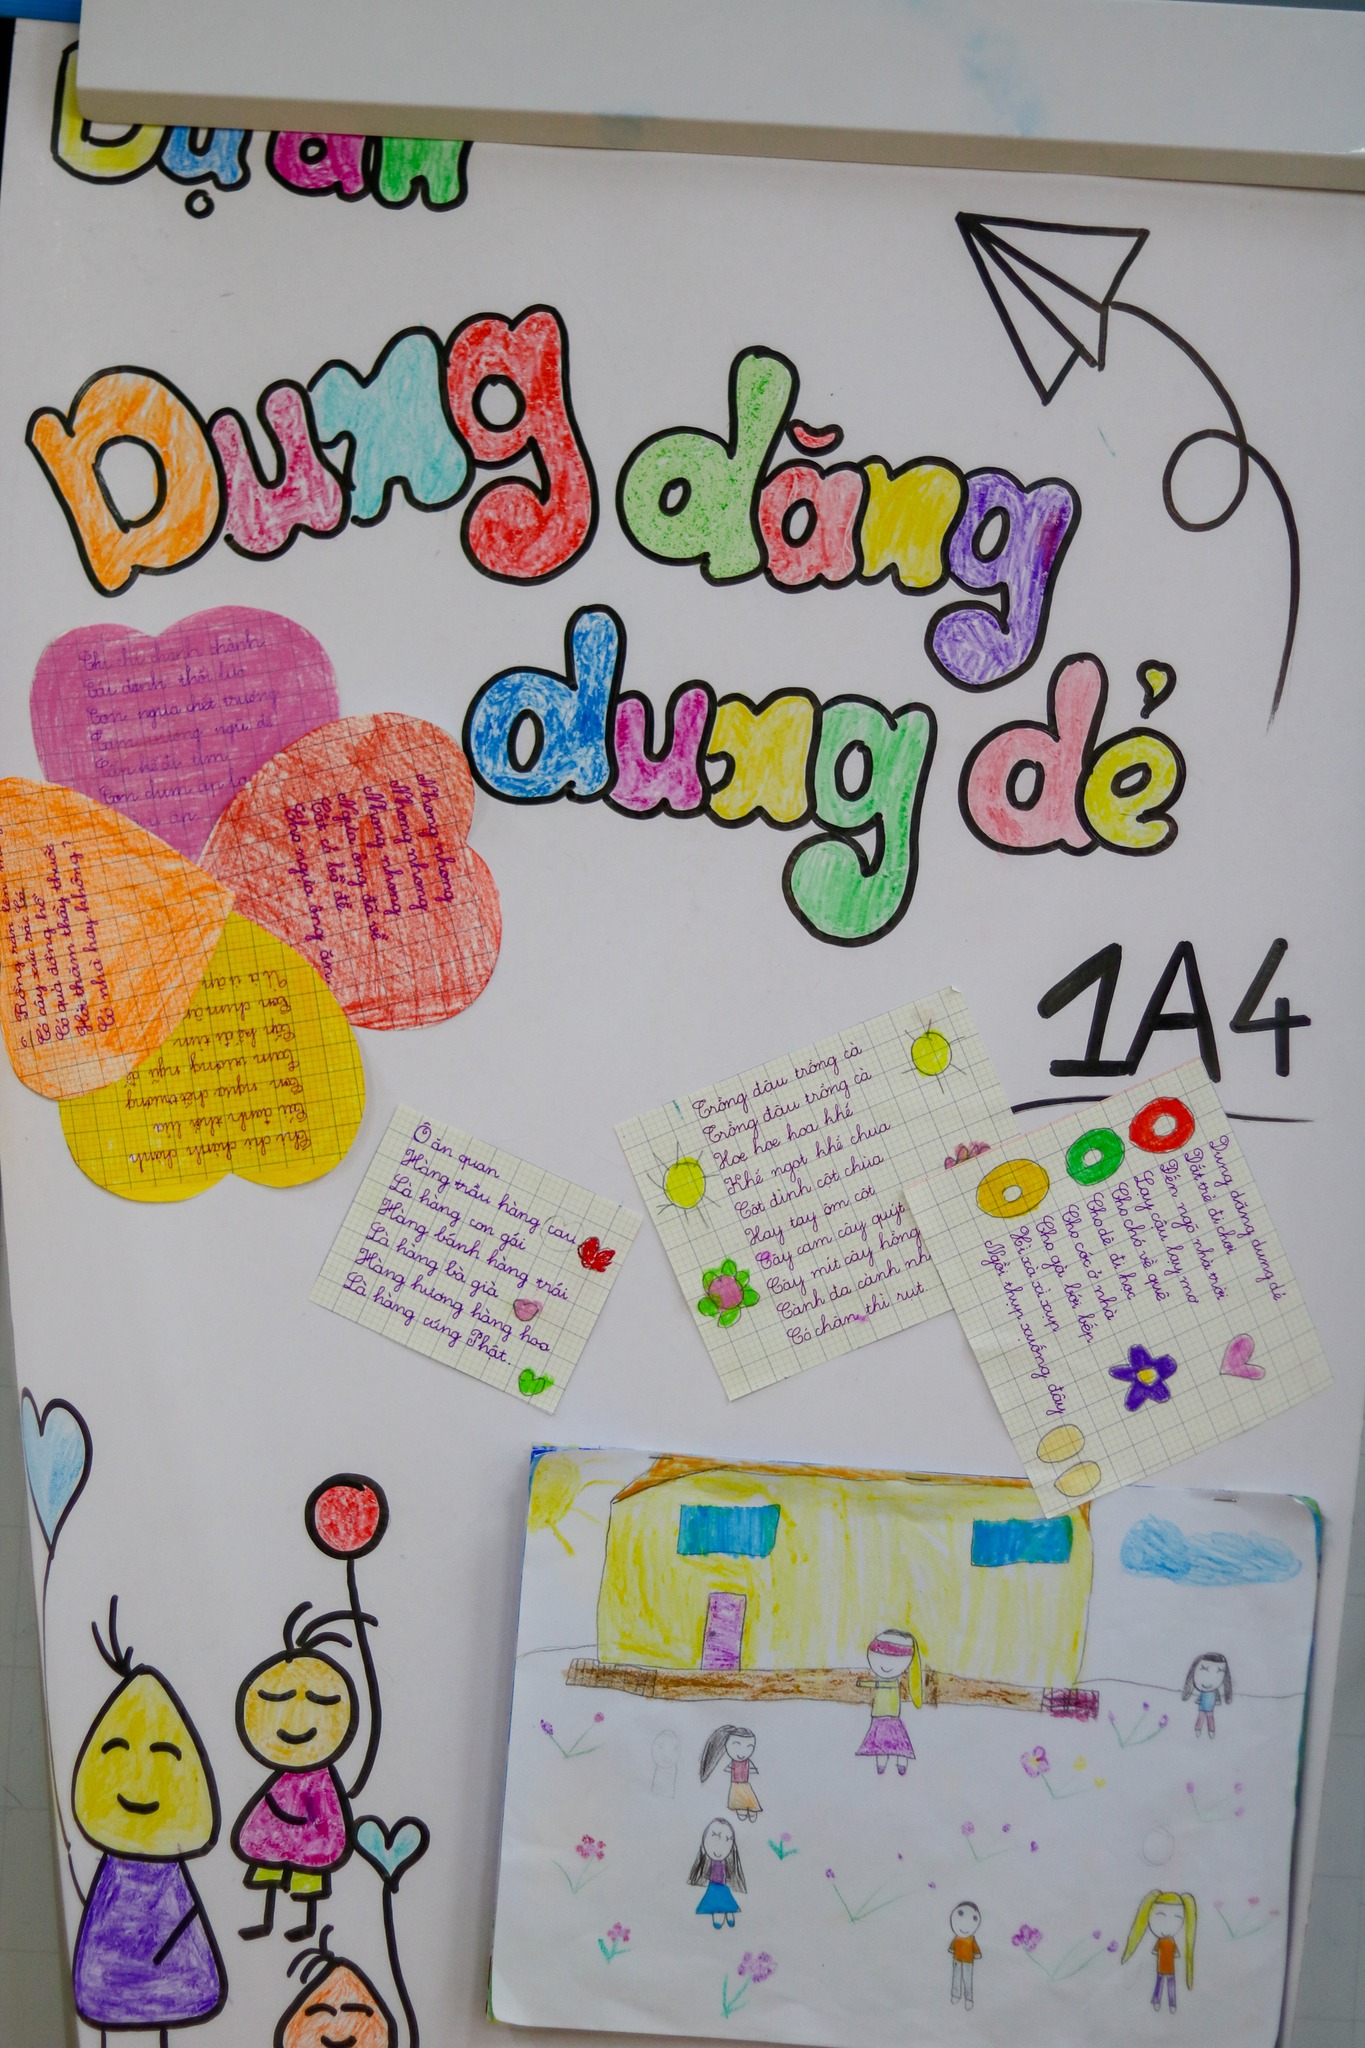 Dự án
Dung dăng
dung dẻ
1A4
Chi chi chành chành
Cái đanh thổi lửa
Con ngựa chết trương
Tam vương ngũ đế
Cấp kế đi tìm
Con chim
Nhong nhong
Nhong nhong
Nhong nhong
Ngựa ông đã về
Cắt cỏ bồ đề
Cho ngựa ông ăn
Rồng rắn lên
Có cây xúc xắc
Có quả đồng hồ
Hỏi thăm thầy thuốc
Có nhà hay không?
Chi chi chành chành
Cái đanh thổi lửa
Con ngựa chết trương
Tam vương ngũ đế
Cấp kế đi tìm
Con chim
Ù à ù ập
Ô ăn quan
Hàng trầu hàng cau
Là hàng con gái
Hàng bánh hàng trái
Là hàng bà già
Hàng hương hàng hoa
Là hàng cúng Phật.
Trồng đậu trồng cà
Trồng đậu trồng cà
Hoe hoe hoa khế
Khế ngọt khế chua
Cột đình cột chùa
Hay tay ôm cột
Cây cam cây quýt
Cây mít cây hồng
Cành đa cành nh
Có chân thì rụt
Dung dăng dung dẻ
Dắt trẻ đi chơi
Đến ngõ nhà trời
Lạy cậu lạy mợ
Cho cháu về quê
Cho dê đi học
Cho cóc ở nhà
Cho gà bới bếp
Xì xà xì xụp
Ngồi thụp xuống đây